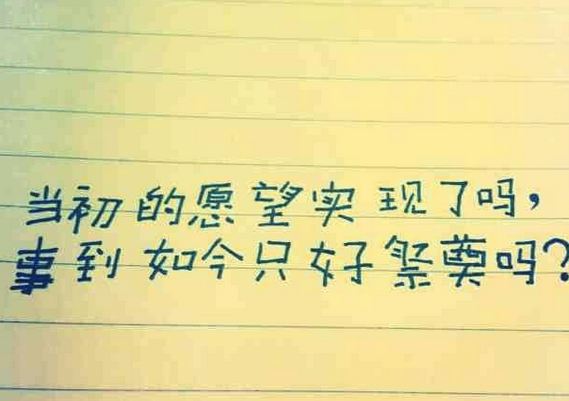 当初的愿望实现了吗，
事到如今只好祭奠吗？